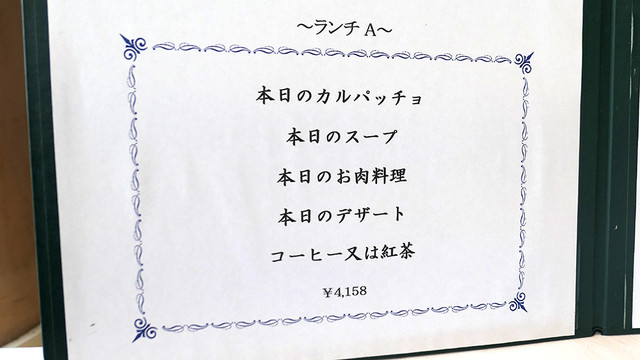 ～ランチ A～
本日のカルパッチョ
本日のスープ
本日のお肉料理
本日のデザート
コーヒー又は紅茶
￥4,158